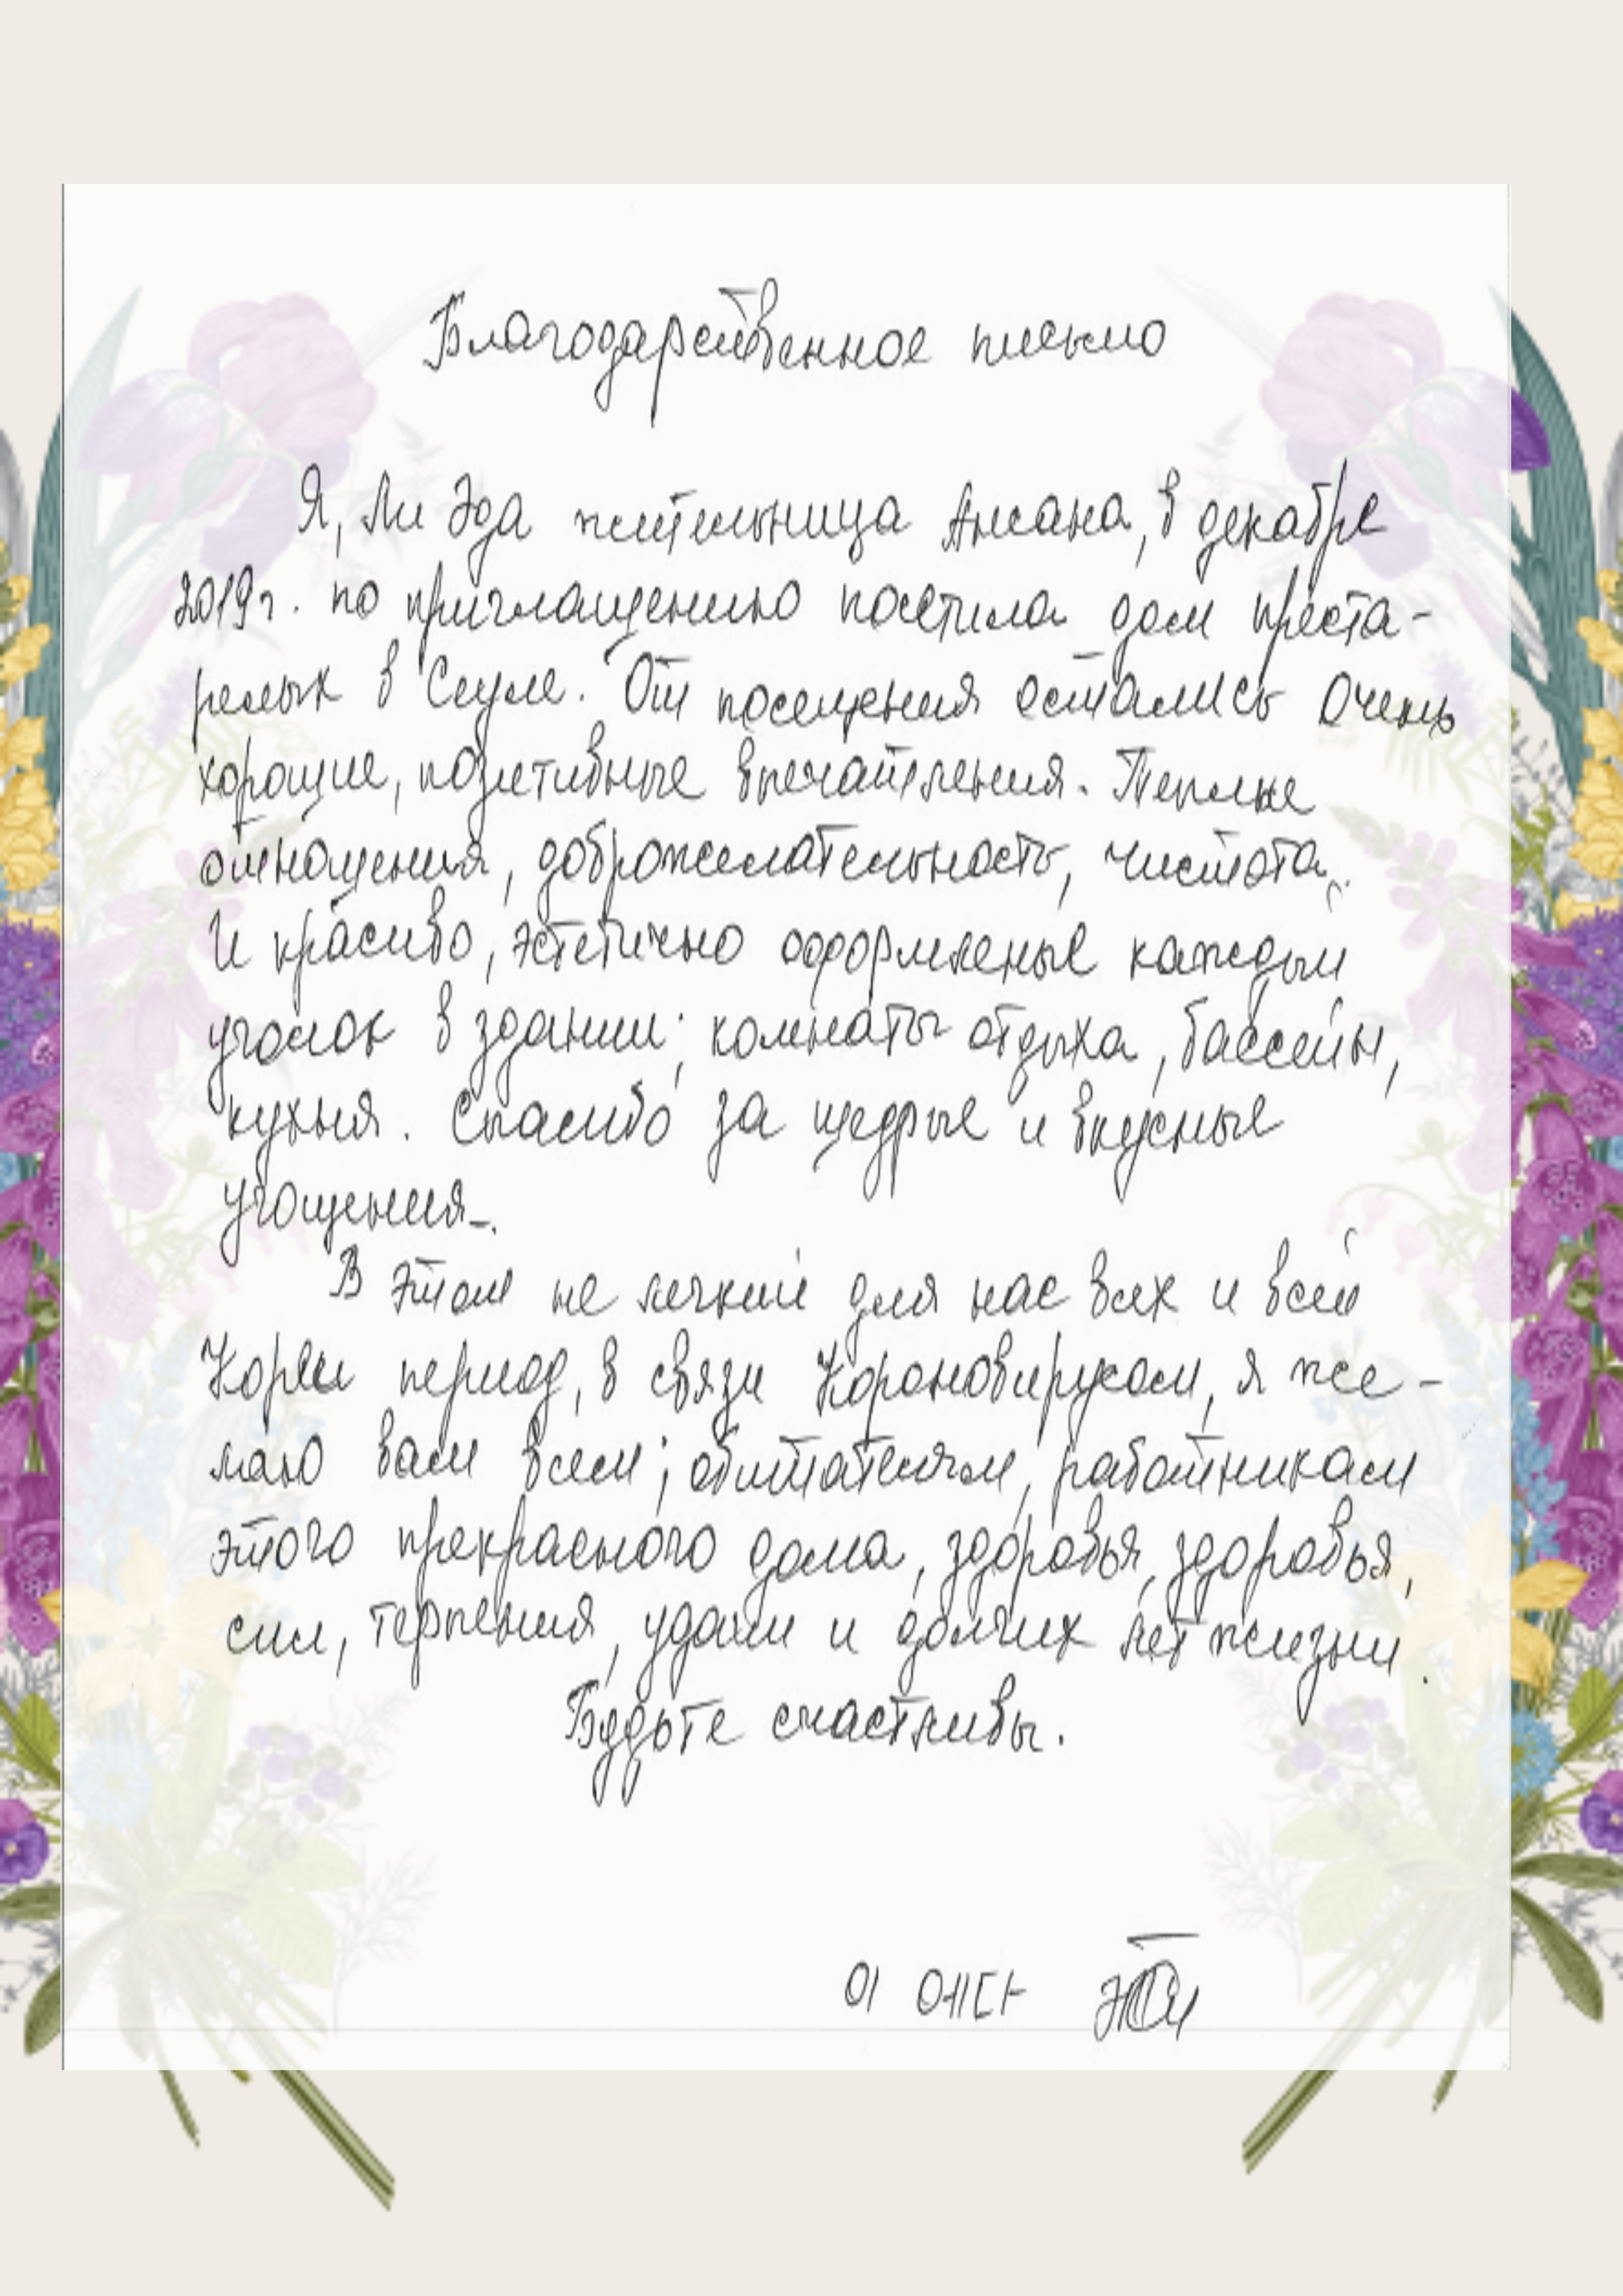 Благодарственное письмо
Я, Ли Эда жительница Ансана, в декабре
2019г. по приглащению посетила дом преста-
релых в Сеуле. От посещения остались очень
хорощие, позитивные впечатления. Теплые
отнощения, доброжелательность, чистота.
И красиво, эстетично оформленые каждый
уголок в здании; комнаты отдыха, бассейн,
кухня. Спасибо за щедрые и вкусные
угощения.
В этот не легкий для нас всех и всей
Кореи период, в связи Короновирусом, я же-
лаю вам всем; обитателям, работникам
этого прекрасного дома, здоровья, здоровья,
сил, терпения, удачи и долгих лет жизни.
Будьте счастливы.